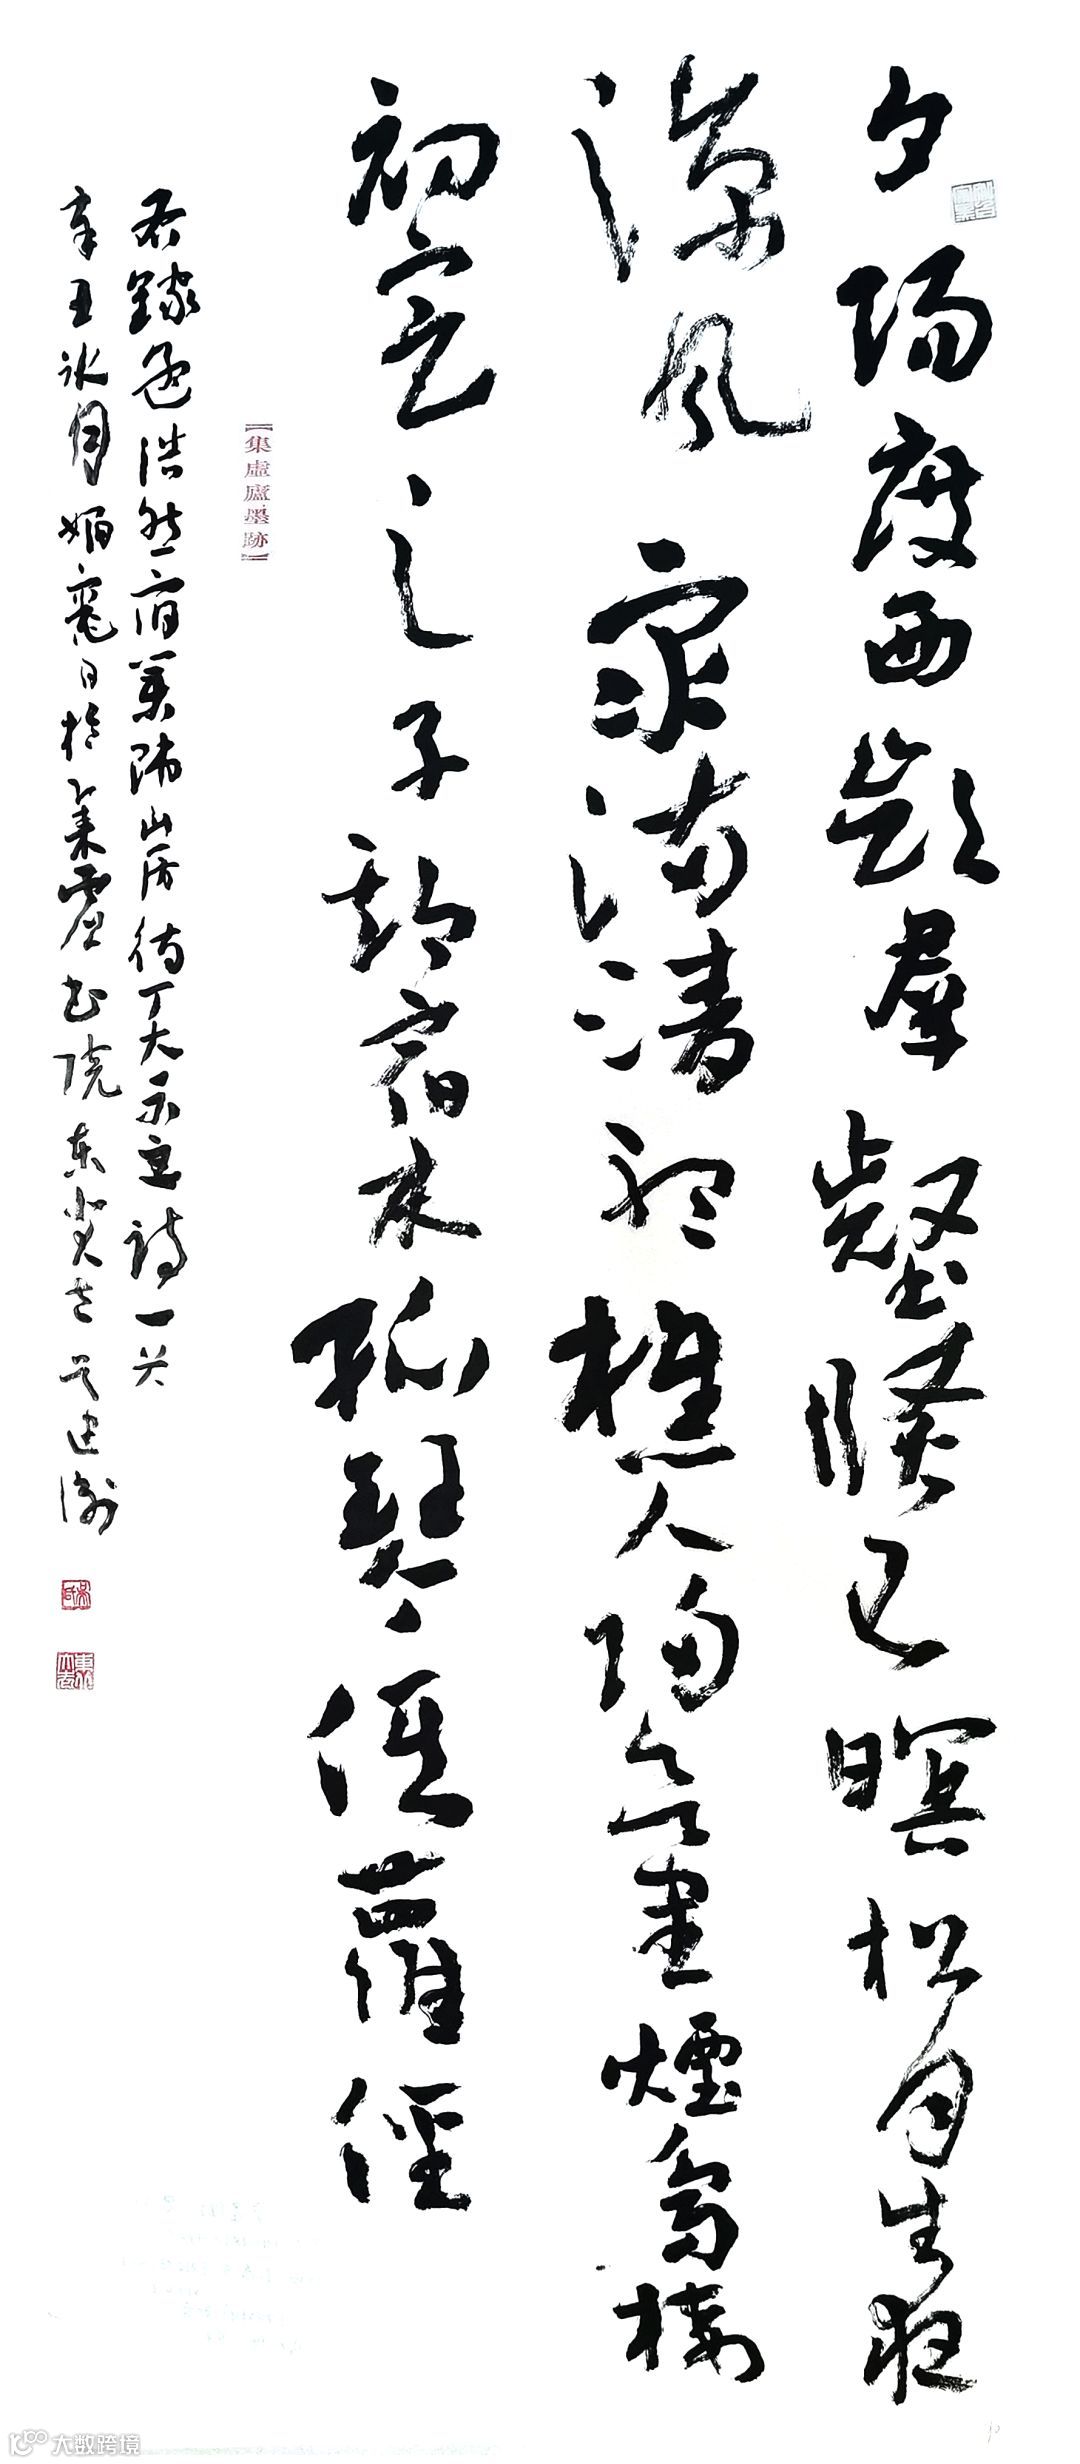 夕陽度西嶺羣壑倏已暝松月生夜
涼風泉滿清聽樵人歸欲盡煙鳥棲
初定之子期宿来孤琴候蘿徑
【集虛廬墨跡】
右錄孟浩然宿業師山房待丁大不至詩一首
辛丑冰月媚竈日於集虛書院東
大数跨境